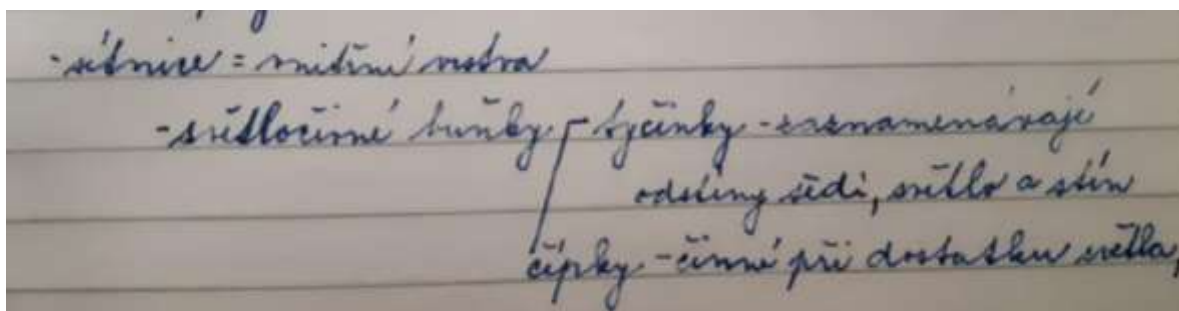 - sítnice = vnitřní vrstva
- světločivné buňky - tyčinky - zaznamenávají
odstíny šedi, světlo a stín
čípky - činné při dostatku světla,